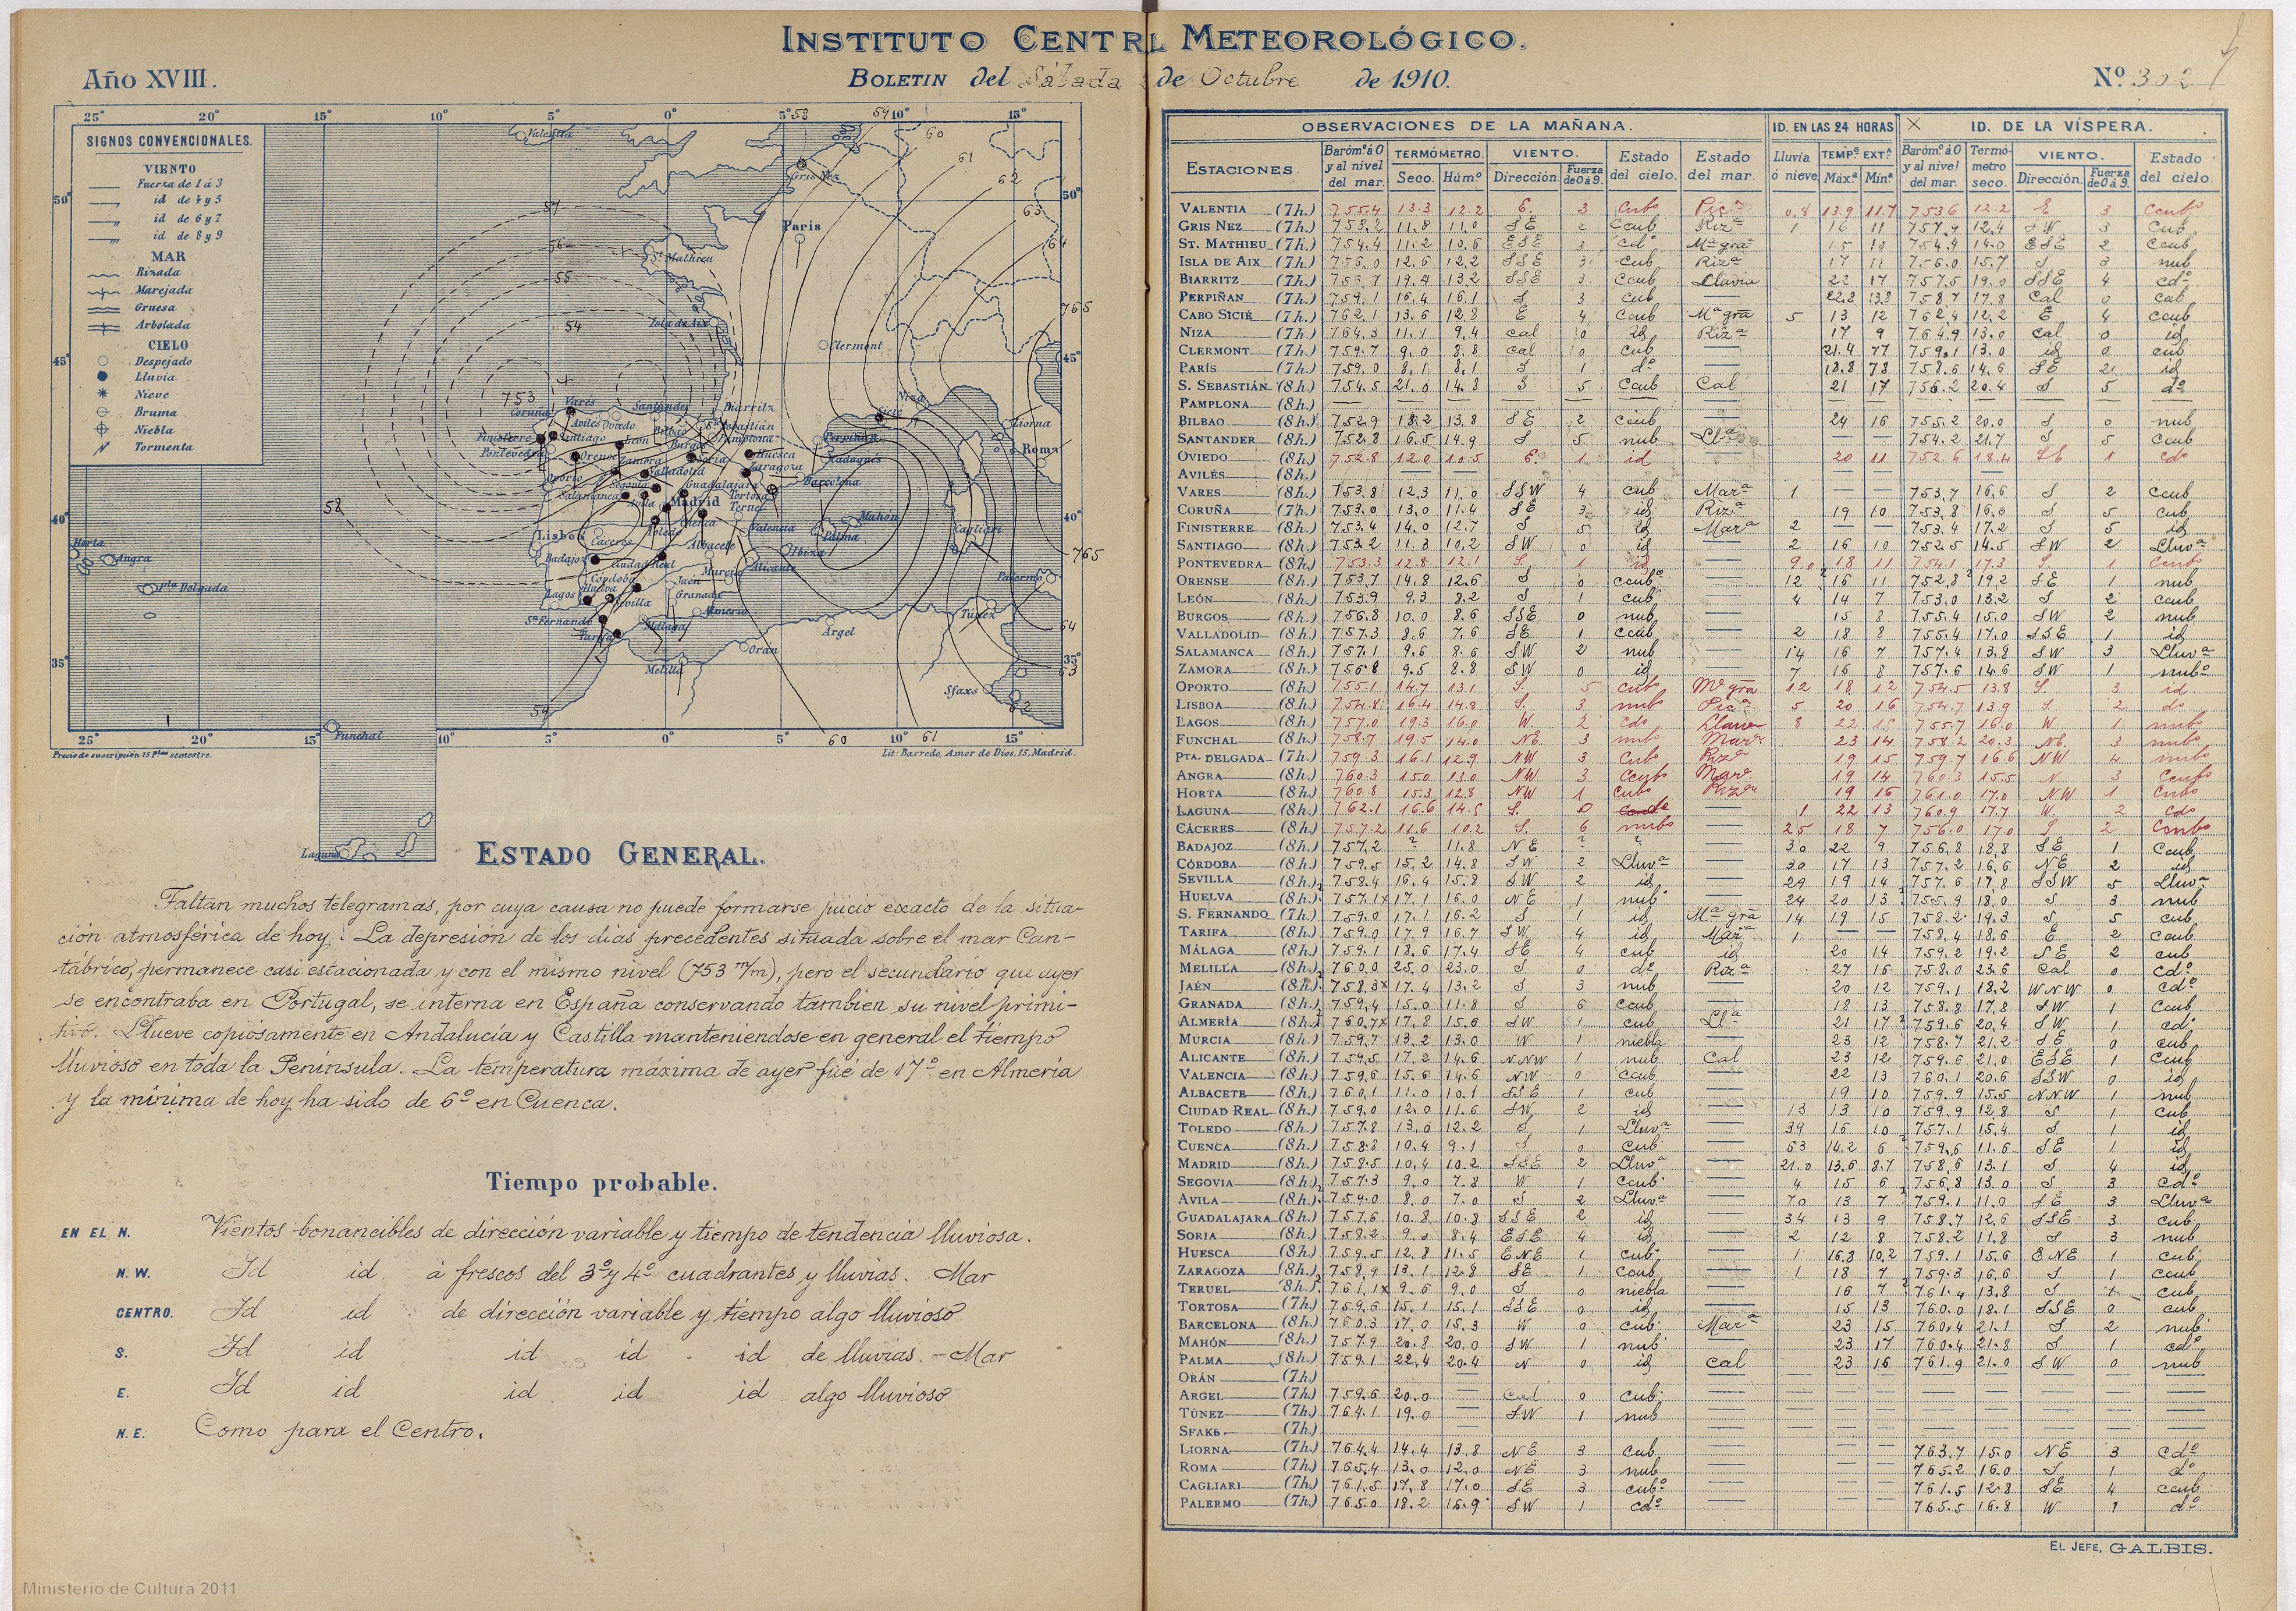 INSTITUTO CENTRL METEOROLÓGICO.
Año XVIII.
BOLETIN del Sábada de Octubre de 1910.
Nº 302
SIGNOS CONVENCIONALES.
VIENTO
Fuerza de 1 á 3
id de 4 y 5
id de 6 y 7
id de 8 y 9
MAR
Rizada
Marejada
Gruesa
Arbolada
CIELO
Despejado
Lluvia
Nieve
Bruma
Niebla
Tormenta
Precio de suscripción 15 Ptas semestre.
Lit. Barredo, Amor de Dios, 15, Madrid.
ESTADO GENERAL.
Faltan muchos telegramas, por cuya causa no puede formarse juicio exacto de la situa-
ción atmosférica de hoy. La depresión de los dias precedentes situada sobre el mar Can-
tábrico, permanece casi estacionada y con el mismo nivel (753 m/m), pero el secundario que ayer
se encontraba en Portugal, se interna en España conservando tambien su nivel primi-
tivo. Llueve copiosamente en Andalucía y Castilla manteniendose en general el tiempo
lluvioso en toda la Península. La temperatura máxima de ayer fué de 17º en Almería
y la mínima de hoy ha sido de 6º en Cuenca.
Tiempo probable.
EN EL N. Vientos bonancibles de dirección variable y tiempo de tendencia lluviosa.
N. W. Id id á frescos del 3º y 4º cuadrantes y lluvias. Mar
CENTRO. Id id de dirección variable y tiempo algo lluvioso
S. Id id id id id de lluvias. - Mar
E. Id id id id id algo lluvioso
N. E. Como para el Centro.
OBSERVACIONES DE LA MAÑANA.
ID. EN LAS 24 HORAS
ID. DE LA VÍSPERA.
ESTACIONES
Baróm.º á 0 y al nivel del mar.
TERMÓMETRO.
Seco. Húm.º
VIENTO.
Dirección. Fuerza de 0 á 9.
Estado del cielo.
Estado del mar.
Lluvia ó nieve.
TEMP.ª EXT.ª
Máx.ª Mín.ª
Baróm.º á 0 y al nivel del mar.
Termómetro seco.
VIENTO.
Dirección. Fuerza de 0 á 9.
Estado del cielo.
VALENTIA (7h.) 755.4 13.3 12.2 E. 3 Cubº Picª 0.8 13.9 11.7 753.6 12.2 E 3 Ccubº
GRIS NEZ (7h.) 758.2 11.8 11.0 SE 2 Ccub Rizª 1 16 11 757.7 12.4 SW 3 Cub
ST. MATHIEU (7h.) 754.4 11.2 10.6 ESE 3 cdº Mª grª 754.4 14.0 ESE 2 Ccub
ISLA DE AIX (7h.) 756.0 12.6 12.2 SSE 3 cub Rizª 17 11 756.0 15.7 S 3 nub
BIARRITZ (7h.) 756.7 19.4 13.2 SSE 3 Ccub Lluvia 22 17 757.5 19.0 SSE 4 cdº
PERPIÑAN (7h.) 759.1 16.4 16.1 S 3 cub 22.8 13.8 758.7 17.8 Cal 0 cub
CABO SICIÉ (7h.) 762.1 13.6 12.8 E 4 Ccub Mª grª 5 13 12 762.4 12.2 E 4 ccub
NIZA (7h.) 764.3 11.1 9.4 cal 0 id Rizª 17 9 764.9 13.0 cal 0 id
CLERMONT (7h.) 759.7 9.0 8.8 cal 0 cub 21.4 77 759.1 13.0 id 0 cub
PARÍS (7h.) 759.0 8.1 8.1 S 1 dº 18.8 78 758.6 14.6 SE id
S. SEBASTIÁN (8h.) 754.5 21.0 14.8 S 5 Ccub Cal 21 17 756.2 20.4 S 5 dº
PAMPLONA (8h.)
BILBAO (8h.) 752.9 18.2 13.8 SE 2 ccub 24 16 755.2 20.0 S 0 nub
SANTANDER (8h.) 752.8 16.5 14.9 S 5 nub Llª 754.2 21.7 S 5 Ccub
OVIEDO (8h.) 752.8 12.0 10.5 E. 1 id 20 11 752.6 18.4 SE 1 cdº
AVILÉS (8h.)
VARES (8h.) 753.8 12.3 11.0 SSW 4 cub Marª 1 753.7 16.6 S 2 Ccub
CORUÑA (7h.) 753.0 13.0 11.4 SE 3 id Rizª 19 10 753.8 16.6 S 5 cub
FINISTERRE (8h.) 753.4 14.0 12.7 S 5 id Marª 2 753.4 17.2 S 5 id
SANTIAGO (8h.) 753.2 11.3 10.2 SW 0 id 2 16 10 752.5 14.5 SW 2 Lluvª
PONTEVEDRA (8h.) 753.3 12.8 12.1 S. 1 id 9.0 18 11 754.1 17.3 S. 1 Ccubº
ORENSE (8h.) 753.7 14.8 12.6 S 0 ccubº 12 16 11 752.8 19.2 SE 1 nub
LEÓN (8h.) 753.9 9.3 8.2 S 1 cub 4 14 7 753.0 13.2 S 2 ccub
BURGOS (8h.) 756.8 10.0 8.6 SSE 0 nub 15 8 755.4 15.0 SW 2 nub
VALLADOLID (8h.) 757.3 8.6 7.6 SE 1 ccub 2 18 8 755.4 17.0 SSE 1 id
SALAMANCA (8h.) 757.1 9.6 8.6 SW 2 nub 14 16 7 757.4 13.8 SW 3 Lluvª
ZAMORA (8h.) 756.8 9.5 8.8 SW 0 id 7 16 8 757.6 14.6 SW 1 nubº
OPORTO (8h.) 755.1 14.7 13.1 S. 5 cubº Mª grª 12 18 12 754.5 13.8 S. 3 id
LISBOA (8h.) 754.8 16.4 14.8 S. 3 nubº Picª 5 20 16 754.7 13.9 S 2 dº
LAGOS (8h.) 757.0 19.3 16.0 W. 2 cdº Llana 8 22 15 755.7 16.0 W. 1 nubº
FUNCHAL (8h.) 758.7 19.5 14.0 NE. 3 nubº Marª 23 14 758.2 20.3 NE. 3 nubº
PTA. DELGADA (7h.) 759.3 16.1 12.9 NW 3 Cubº Rizª 19 15 759.7 16.6 NW 4 nubº
ANGRA (8h.) 760.3 15.0 13.0 NW 3 Ccubº Marª 19 14 760.3 15.5 N 3 Ccubº
HORTA (8h.) 760.8 15.3 12.8 NW 1 Cubº Rizª 19 15 761.0 17.0 NW 1 Cubº
LAGUNA (8h.) 762.1 16.6 14.5 S. 0 1 22 13 760.9 17.7 W 2 Cdº
CÁCERES (8h.) 757.2 11.6 10.2 S. 6 nubº 25 18 7 756.0 17.0 S 2 Ccubº
BADAJOZ (8h.) 757.2 ? 11.8 NE ? ? 30 22 9 756.8 18.8 SE 1 Ccub
CÓRDOBA (8h.) 759.5 15.2 14.8 SW 2 Lluvª 30 17 13 757.2 16.6 NE 2 id
SEVILLA (8h.) 758.4 16.4 15.8 SW 2 id 29 19 14 757.6 17.8 SSW 5 Lluvª
HUELVA (8h.) 757.1 17.1 16.0 NE 1 nub 24 20 13 755.9 18.0 S 3 nub
S. FERNANDO (7h.) 759.0 17.1 16.2 S 1 id Mª grª 14 19 15 758.2 19.3 S 5 cub
TARIFA (8h.) 759.0 17.9 16.7 SW 4 id Marª 1 758.4 18.6 E 2 Ccub
MÁLAGA (8h.) 759.1 18.6 17.4 SE 4 cub id 20 14 759.2 19.2 SE 2 cub
MELILLA (8h.) 760.0 25.0 23.0 S 0 dº Rizª 27 16 758.0 23.6 Cal 0 Cdº
JAÉN (8h.) 758.3 17.4 13.2 S 3 nub 20 12 759.1 18.2 WNW 0 cdº
GRANADA (8h.) 759.4 15.0 11.8 S 6 ccub 18 13 758.8 17.8 SW 1 Ccub
ALMERÍA (8h.) 760.7 17.8 15.6 SW 1 cub Llª 21 17 759.6 20.4 SW 1 cdº
MURCIA (8h.) 759.7 13.2 13.0 W 1 niebla 23 12 758.7 21.2 SE 0 cub
ALICANTE (8h.) 759.5 17.2 14.6 NNW 1 nub Cal 23 12 759.6 21.0 ESE 1 Ccub
VALENCIA (8h.) 759.6 15.6 14.6 NW 0 ccub 22 13 760.1 20.6 SSW 0 id
ALBACETE (8h.) 760.1 11.0 10.1 SSE 1 cub 19 10 759.9 15.5 NNW 1 nub
CIUDAD REAL (8h.) 759.0 12.0 11.6 SW 2 id 13 13 10 759.9 12.8 S 1 cub
TOLEDO (8h.) 757.8 13.6 12.2 S 1 Lluvª 39 16 10 757.1 15.4 S 1 id
CUENCA (8h.) 758.8 10.4 9.1 S 0 cub 63 14.2 6 759.6 11.6 SE 1 id
MADRID (8h.) 758.5 10.4 10.2 SSE 2 Lluvª 21.0 13.6 8.7 758.6 13.1 S 4 id
SEGOVIA (8h.) 757.3 9.0 7.8 W 1 Ccub 4 15 6 756.8 13.0 S 3 cdº
AVILA (8h.) 754.0 8.0 7.0 S 2 Lluvª 70 13 7 759.1 11.0 SE 3 Lluvª
GUADALAJARA (8h.) 757.6 10.8 10.8 SSE 2 id 34 13 9 758.7 12.6 SSE 3 cub
SORIA (8h.) 758.2 8.4 ESE 4 id 2 12 8 758.2 11.8 S 3 nub
HUESCA (8h.) 759.5 12.8 11.5 ENE 1 cub 1 16.3 10.2 759.1 15.6 ENE 1 cub
ZARAGOZA (8h.) 758.9 13.1 12.8 SE 1 Ccub 1 18 7 759.3 16.6 S 1 ccub
TERUEL (8h.) 761.1 9.6 9.0 S 0 niebla 16 7 761.4 13.8 S 1 cub
TORTOSA (7h.) 759.6 15.1 15.1 SSE 0 id 15 13 760.0 18.1 SSE 0 cub
BARCELONA (8h.) 760.3 17.0 15.3 W 0 cub Marª 23 15 760.4 21.1 S 2 nub
MAHÓN (8h.) 757.9 20.8 20.0 SW 1 nub 23 17 760.4 21.8 S 1 cdº
PALMA (8h.) 759.1 22.4 20.4 N 0 id cal 23 16 761.9 21.0 SW 0 nub
ORÁN (7h.)
ARGEL (7h.) 759.6 20.0 Cal 0 cub
TÚNEZ (7h.) 764.1 19.0 SW 1 nub
SFAKS (7h.)
LIORNA (7h.) 764.4 14.4 13.8 NE 3 cub 763.7 15.0 NE 3 Cdº
ROMA (7h.) 765.4 13.0 12.0 NE 3 nub 765.2 16.0 S 1 dº
CAGLIARI (7h.) 761.5 17.8 17.0 SE 3 cubº 761.5 12.8 SE 4 ccub
PALERMO (7h.) 765.0 18.2 16.9 SW 1 cdº 765.5 16.8 W 1 dº
EL JEFE, GALBIS.
Ministerio de Cultura 2011